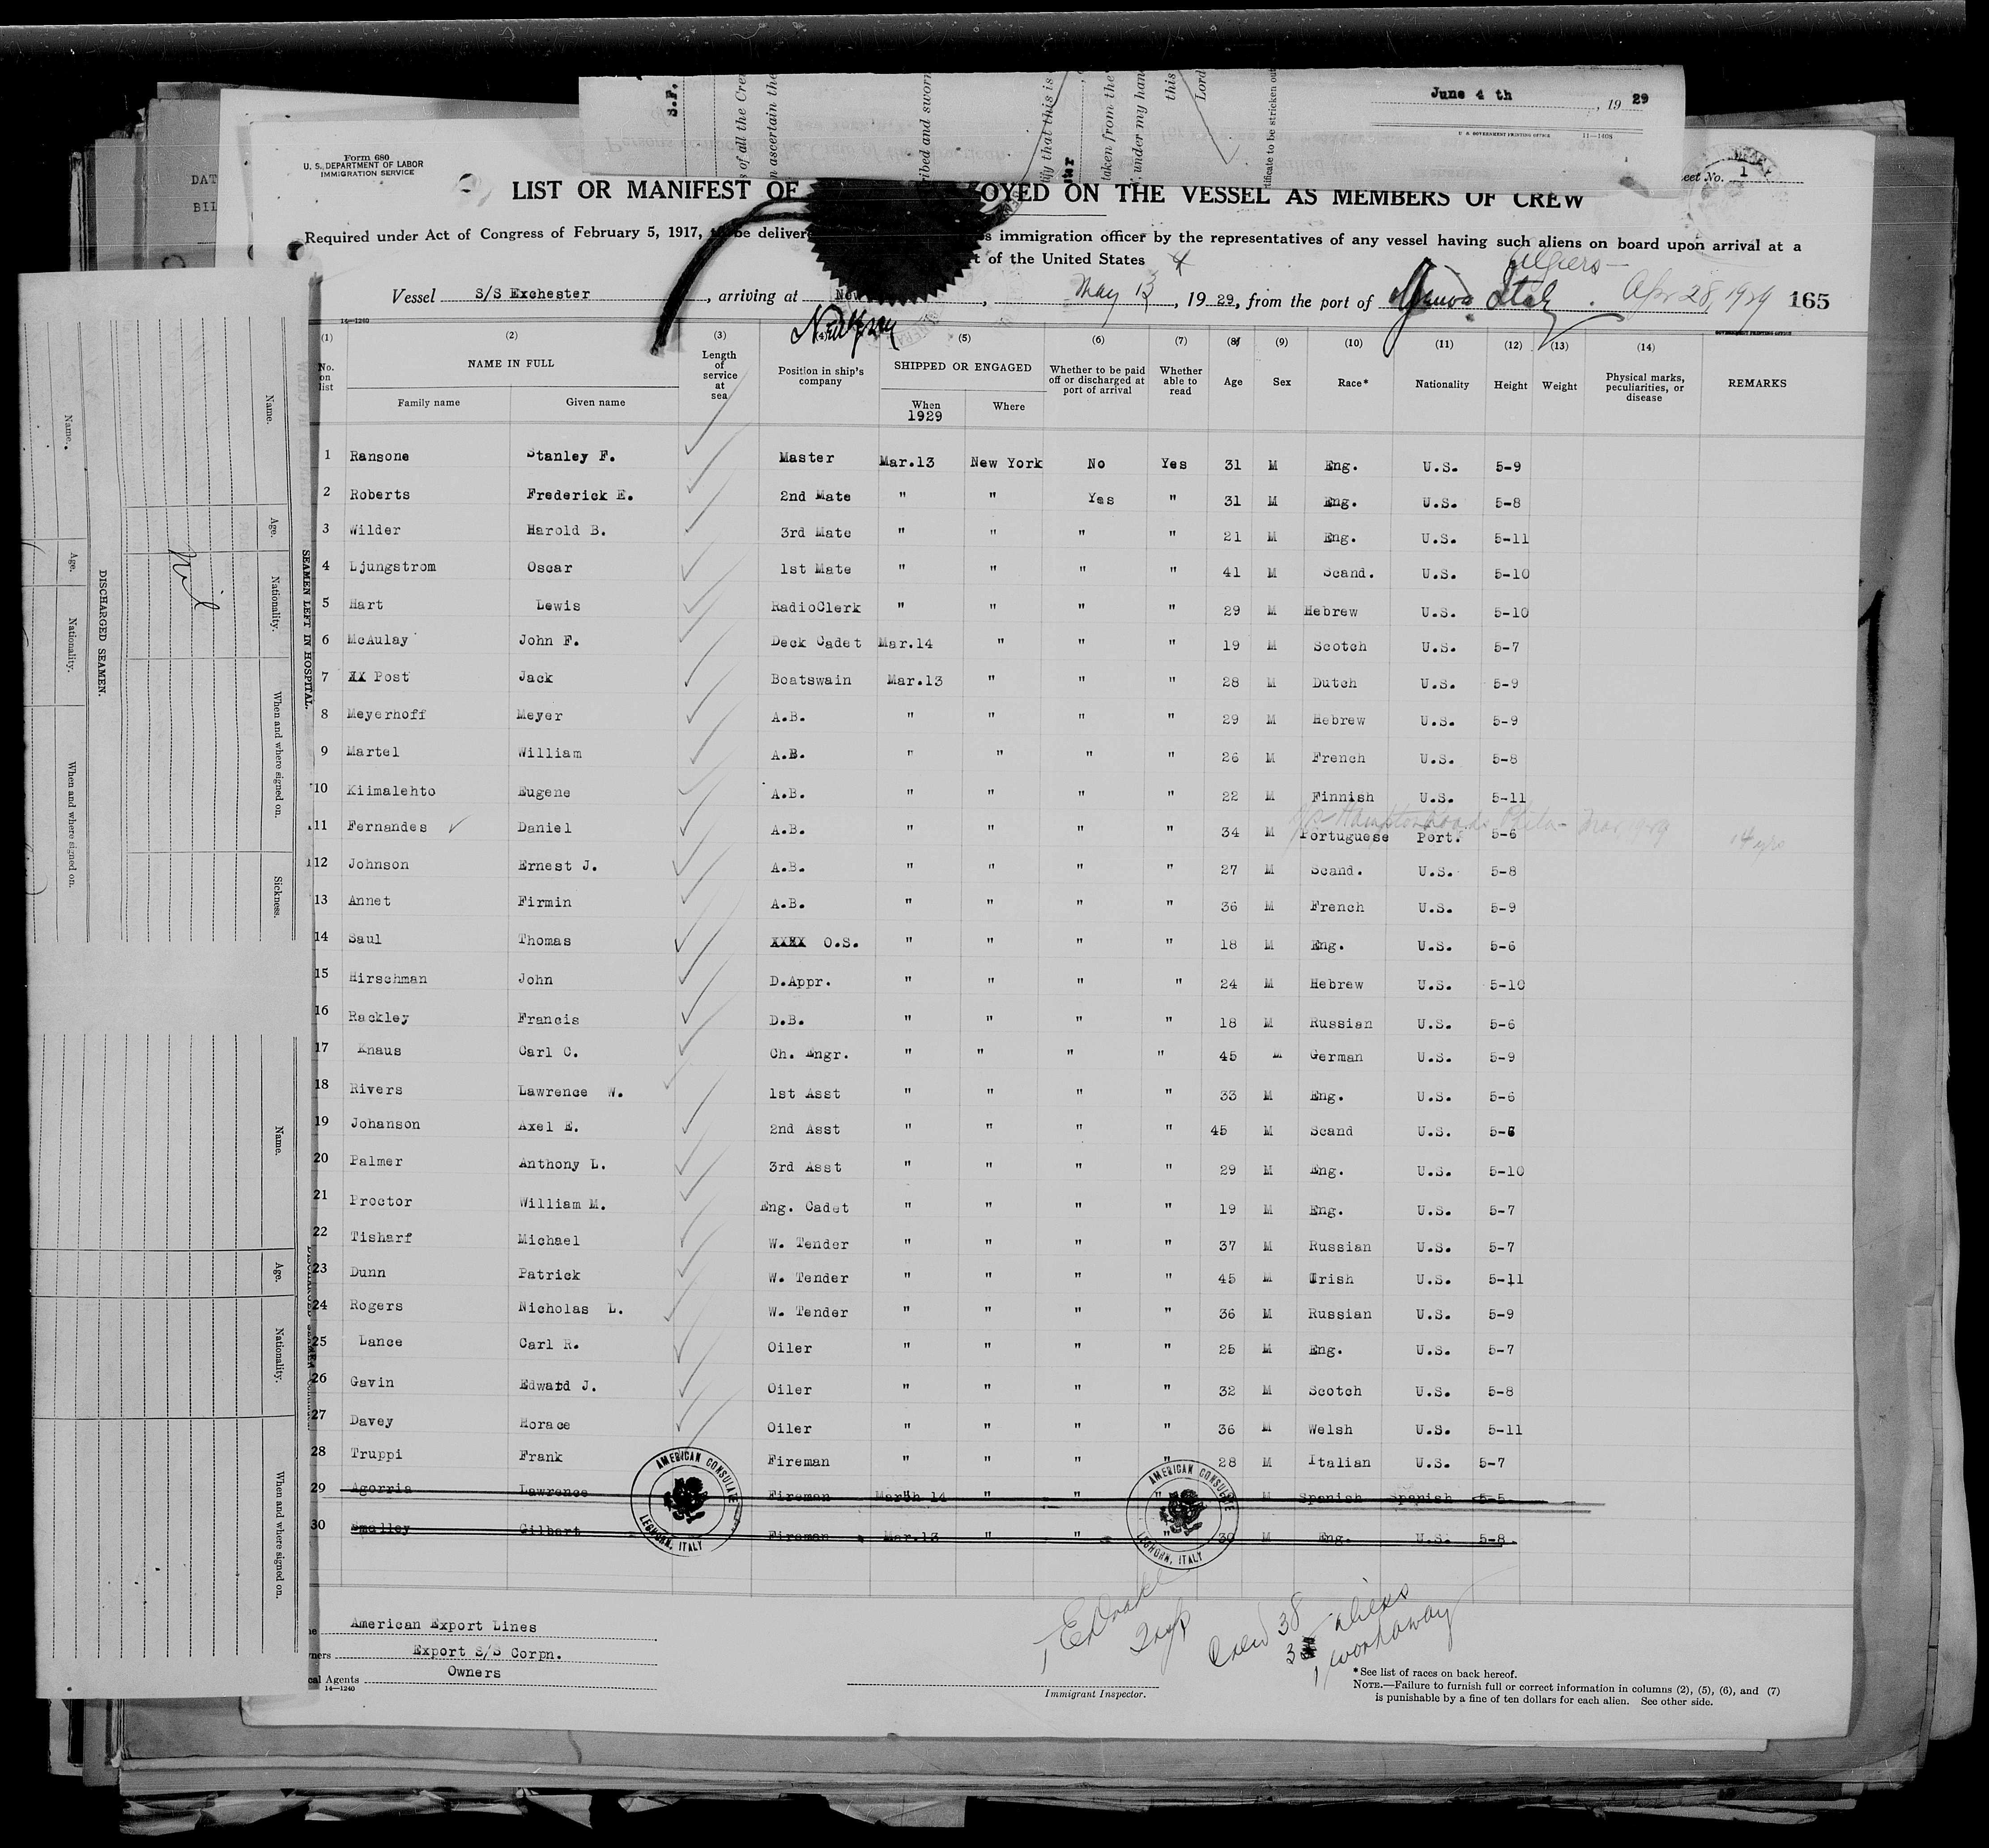 June 4 th , 19 29
U. S. GOVERNMENT PRINTING OFFICE 11—1408
S.F.
of all the Cre
n ascertain the
ribed and sworn
ify that this is
taken from the
, under my hand
this
Lord
tificate to be stricken out
Form 680
U. S. DEPARTMENT OF LABOR
IMMIGRATION SERVICE
DAT
BIL
eet No. 1
LIST OR MANIFEST OF OYED ON THE VESSEL AS MEMBERS OF CREW
Required under Act of Congress of February 5, 1917, to be delivere s immigration officer by the representatives of any vessel having such aliens on board upon arrival at a
t of the United States
Algiers—
Vessel S/S Exchester , arriving at New , May 13 , 19 29, from the port of Genoa Italy . Apr 28, 1929 165
14—1240
GOVERNMENT PRINTING OFFICE
(1) (2) (3) (4) (5) (6) (7) (8) (9) (10) (11) (12) (13) (14)
No. on list NAME IN FULL Length of service at sea Position in ship's company SHIPPED OR ENGAGED Whether to be paid off or discharged at port of arrival Whether able to read Age Sex Race* Nationality Height Weight Physical marks, peculiarities, or disease REMARKS
Family name Given name When 1929 Where
1 Ransone Stanley F. Master Mar.13 New York No Yes 31 M Eng. U.S. 5-9
2 Roberts Frederick E. 2nd Mate " " Yes " 31 M Eng. U.S. 5-8
3 Wilder Harold B. 3rd Mate " " " " 21 M Eng. U.S. 5-11
4 Ljungstrom Oscar 1st Mate " " " " 41 M Scand. U.S. 5-10
5 Hart Lewis RadioClerk " " " " 29 M Hebrew U.S. 5-10
6 McAulay John F. Deck Cadet Mar.14 " " " 19 M Scotch U.S. 5-7
7 XX Post Jack Boatswain Mar.13 " " " 28 M Dutch U.S. 5-9
8 Meyerhoff Meyer A.B. " " " " 29 M Hebrew U.S. 5-9
9 Martel William A.B. " " " " 26 M French U.S. 5-8
10 Kiimalehto Eugene A.B. " " " " 22 M Finnish U.S. 5-11
Hampton Roads Phila
11 Fernandes Daniel A.B. " " " " 34 M Portuguese Port. 5-6 14 yrs
12 Johnson Ernest J. A.B. " " " " 27 M Scand. U.S. 5-8
13 Annet Firmin A.B. " " " " 36 M French U.S. 5-9
14 Saul Thomas XXXX O.S. " " " " 18 M Eng. U.S. 5-6
15 Hirschman John D.Appr. " " " " 24 M Hebrew U.S. 5-10
16 Rackley Francis D.B. " " " " 18 M Russian U.S. 5-6
17 Knaus Carl C. Ch. Engr. " " " " 45 M German U.S. 5-9
18 Rivers Lawrence W. 1st Asst " " " " 33 M Eng. U.S. 5-6
19 Johanson Axel E. 2nd Asst " " " " 45 M Scand U.S.
20 Palmer Anthony L. 3rd Asst " " " " 29 M Eng. U.S. 5-10
21 Proctor William M. Eng. Cadet " " " " 19 M Eng. U.S. 5-7
22 Tisharf Michael W. Tender " " " " 37 M Russian U.S. 5-7
23 Dunn Patrick W. Tender " " " " 45 M Irish U.S. 5-11
24 Rogers Nicholas L. W. Tender " " " " 36 M Russian U.S. 5-9
25 Lance Carl R. Oiler " " " " 25 M Eng. U.S. 5-7
26 Gavin Edward J. Oiler " " " " 32 M Scotch U.S. 5-8
27 Davey Horace Oiler " " " " 36 M Welsh U.S. 5-11
28 Truppi Frank Fireman " " " " 28 M Italian U.S. 5-7
29 Agorria Lawrence Fireman March 14 " " " M Spanish Spanish 5-5
30 Smalley Gilbert Fireman Mar.13 " " " 30 M Eng. U.S. 5-8
AMERICAN CONSULATE LEGHORN, ITALY
AMERICAN CONSULATE LEGHORN, ITALY
American Export Lines
ners Export S/S Corpn.
cal Agents Owners
14—1240
Crew 38
3 aliens
1 workaway
Immigrant Inspector.
*See list of races on back hereof.
NOTE.—Failure to furnish full or correct information in columns (2), (5), (6), and (7)
is punishable by a fine of ten dollars for each alien. See other side.
SEAMEN LEFT IN HOSPITAL.
Name. Age. Nationality. When and where signed on. Sickness.
Nil
DISCHARGED SEAMEN.
Name. Age. Nationality. When and where signed on.
Name. Age. Nationality. When and where signed on.